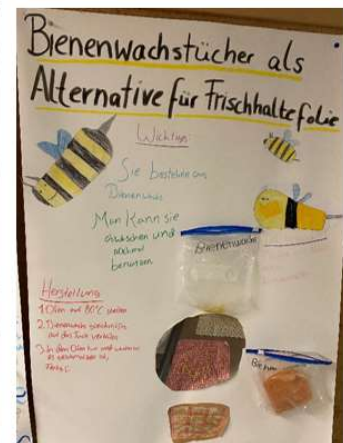 Bienenwachstücher als
Alternative für Frischhaltefolie
Wichtig
Sie bestehen aus
Bienenwachs
Man kann sie
abwaschen und
nochmal
benutzen
Bienenwachs
Herstellung
1. Ofen auf 80°C stellen
2. Bienenwachs
auf das Tuch verteilen
3. In den Ofen tun und warten
es geschmolzen ist,
fertig!